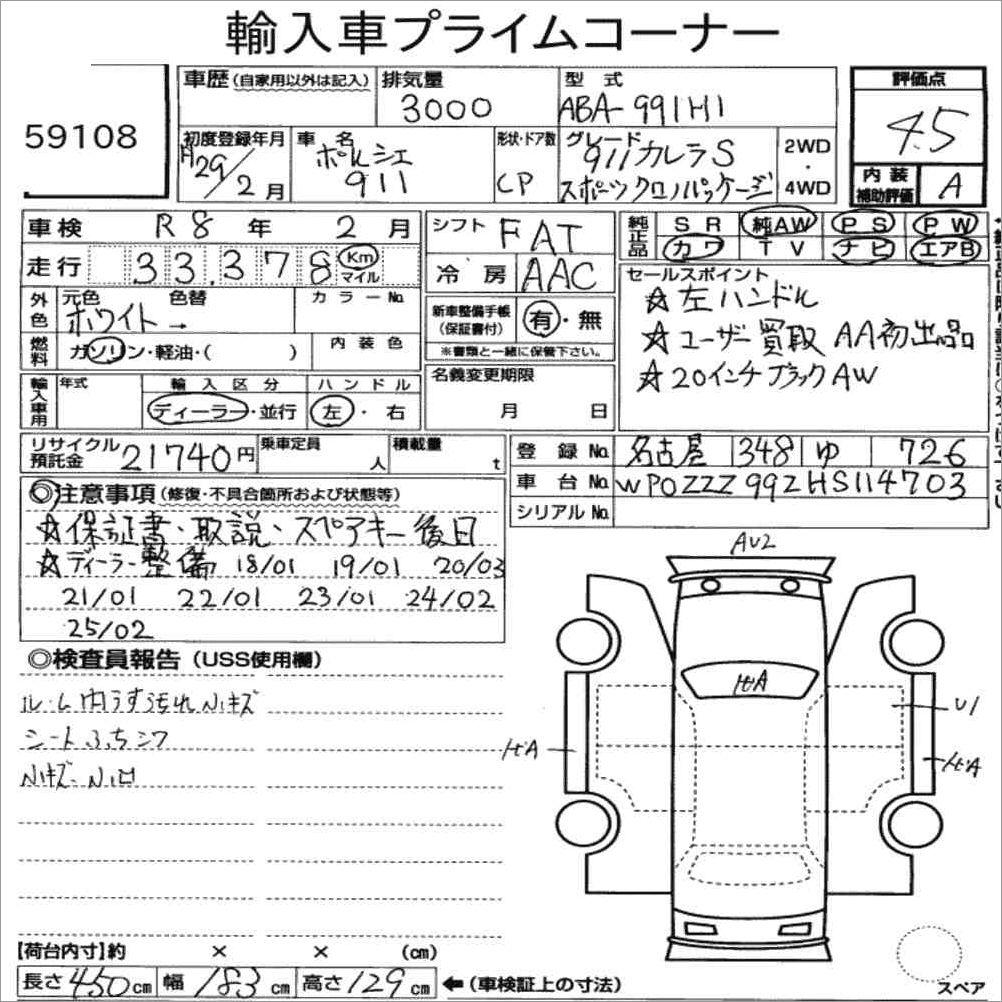 輸入車プライムコーナー
59108
車歴(自家用以外は記入)
排気量
3000
型式
ABA-991H1
評価点
4.5
内装補助評価
A
初度登録年月
H29/2月
車名
ポルシェ
911
形状・ドア数
CP
グレード
911カレラS
スポーツクロノパッケージ
2WD
・
4WD
車検 R8年 2月
走行 33,378 Km マイル
シフト FAT
冷房 AAC
純正品 SR 純AW PS PW
カワ TV ナビ エアB
外色 元色 色替 カラーNo.
ホワイト→
燃料 ガソリン・軽油・( )
内装色
新車整備手帳(保証書付) 有・無
※書類と一緒に保管下さい。
セールスポイント
☆左ハンドル
☆ユーザー買取 AA初出品
☆20インチブラックAW
輸入車用 年式 輸入区分 ハンドル
ディーラー・並行 左・右
名義変更期限
月 日
リサイクル預託金 21740円
乗車定員 人
積載量 t
登録No. 名古屋 348 ゆ 726
車台No. WP0ZZZ99ZHS114703
シリアルNo.
◎注意事項(修復・不具合箇所および状態等)
☆保証書・取説・スペアキー後日
☆ディーラー整備 18/01 19/01 20/03
21/01 22/01 23/01 24/02
25/02
◎検査員報告(USS使用欄)
ルーム内うす汚れ小キズ
シートふちシワ
小キズ 小凹
AU2
U1
【荷台内寸】約 × × (cm)
長さ450cm 幅183cm 高さ129cm ←(車検証上の寸法)
スペア